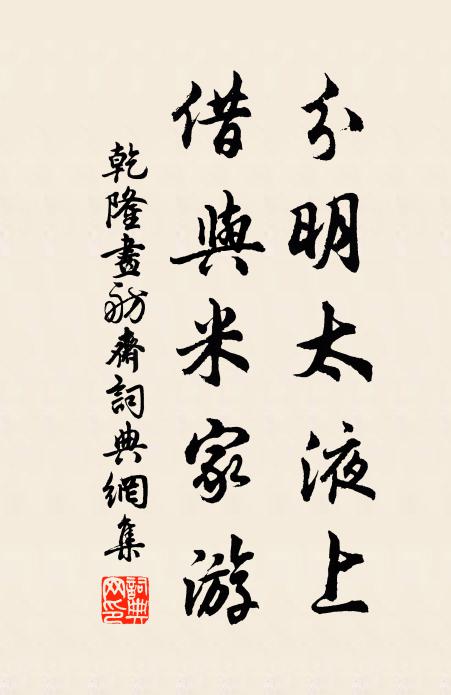 分明太液上
借與米家游
乾隆畫舫齋詞典網集
詞典網印